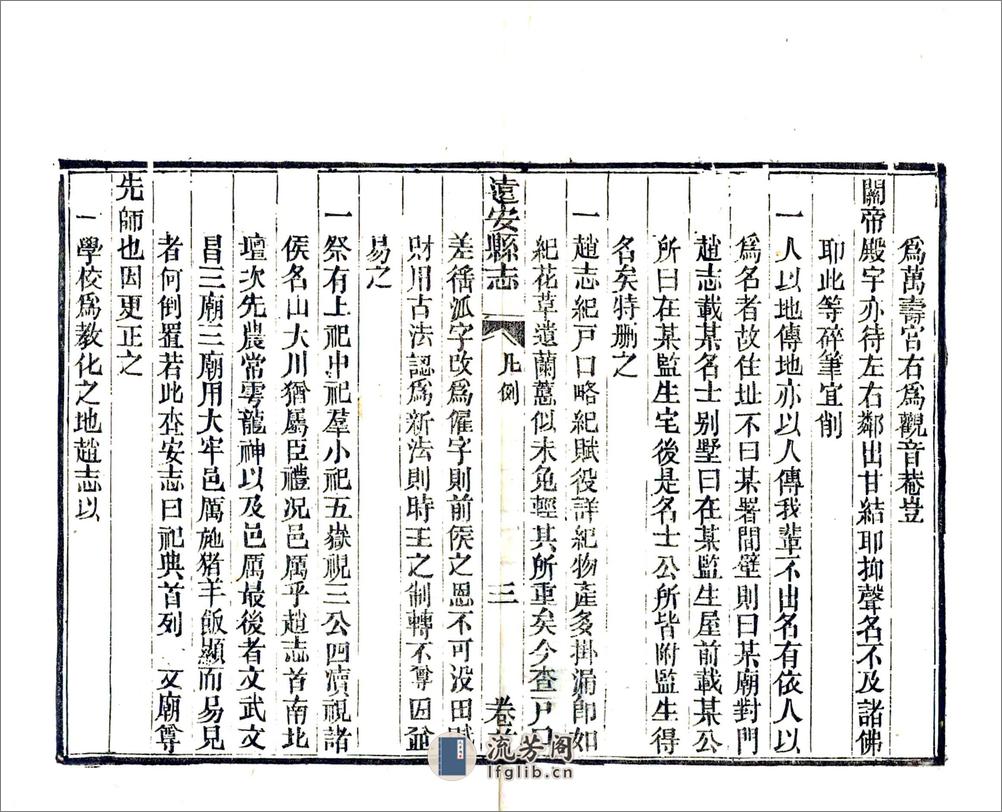 爲萬壽宮右爲觀音菴豈
關帝殿宇亦待左右鄰出甘結耶抑聲名不及諸佛
耶此等碎筆宜削
一人以地傳地亦以人傳我輩不出名有依人以
爲名者故住址不曰某署間壁則曰某廟對門
趙志載某名士别墅曰在某監生屋前載某公
所曰在某監生宅後是名士公所皆附監生得
名矣特删之
一趙志紀戸口略紀賦役詳紀物產多掛漏卽如
紀花草遺蘭蕙似未免輕其所重矣今查戸口
遠安縣志
凡例
三
卷首
差徭派字改爲僱字則前侯之恩不可没田賦
財用古法認爲新法則時王之制轉不尊因並
易之
一祭有上祀中祀羣小祀五嶽視三公四瀆視諸
侯名山大川猶屬臣禮况邑厲乎趙志首南北
壇次先農常雩龍神以及邑厲最後者文武文
昌三廟三廟用大牢邑厲施猪羊飯顯而易見
者何倒置若此查安志曰祀典首列 文廟尊
先師也因更正之
一學校爲教化之地趙志以
流芳阁
lfglib.cn